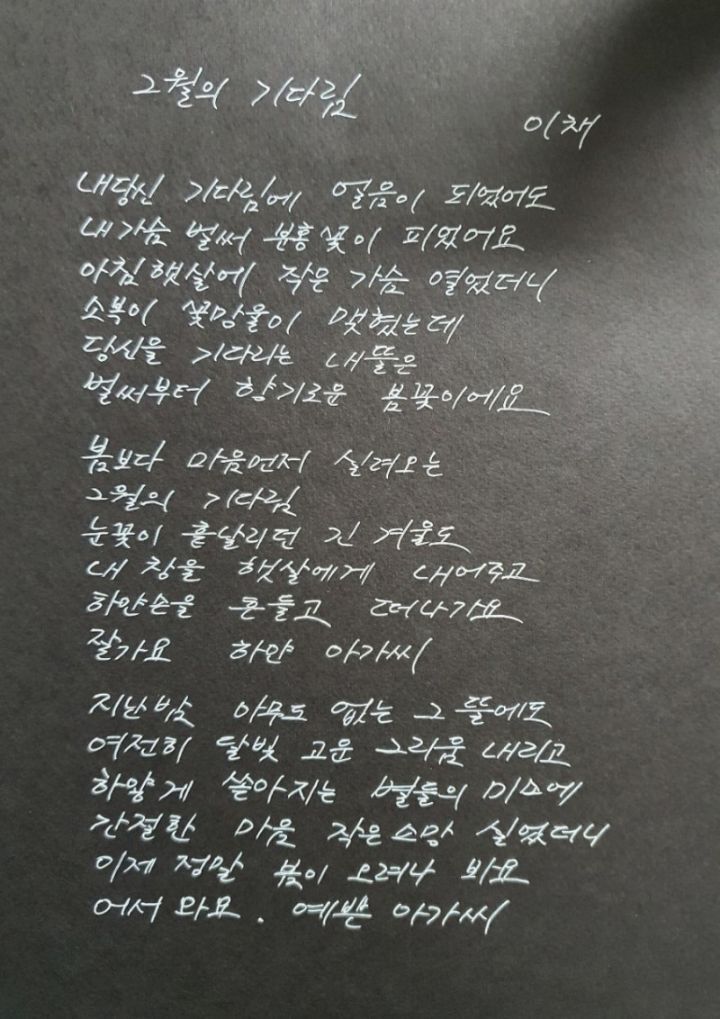 2월의 기다림
이채
내당신 기다림에 얼음이 되었어도
내가슴 벌써 분홍꽃이 피었어요
아침햇살에 작은 가슴 열었더니
소복이 꽃망울이 맺혔는데
당신을 기다리는 내뜰은
벌써부터 향기로운 봄꽃이에요
봄보다 마음먼저 실려오는
2월의 기다림
눈꽃이 흩날리던 긴 겨울도
내 창을 햇살에게 내어주고
하얀손을 흔들고 떠나가요
잘가요 하얀 아가씨
지난밤 아무도 없는 그 뜰에도
여전히 달빛 고운 그리움 내리고
하얗게 쏟아지는 별들의 미소에
간절한 마음 작은소망 실었더니
이제 정말 봄이 오려나 봐요
어서 와요. 예쁜 아가씨